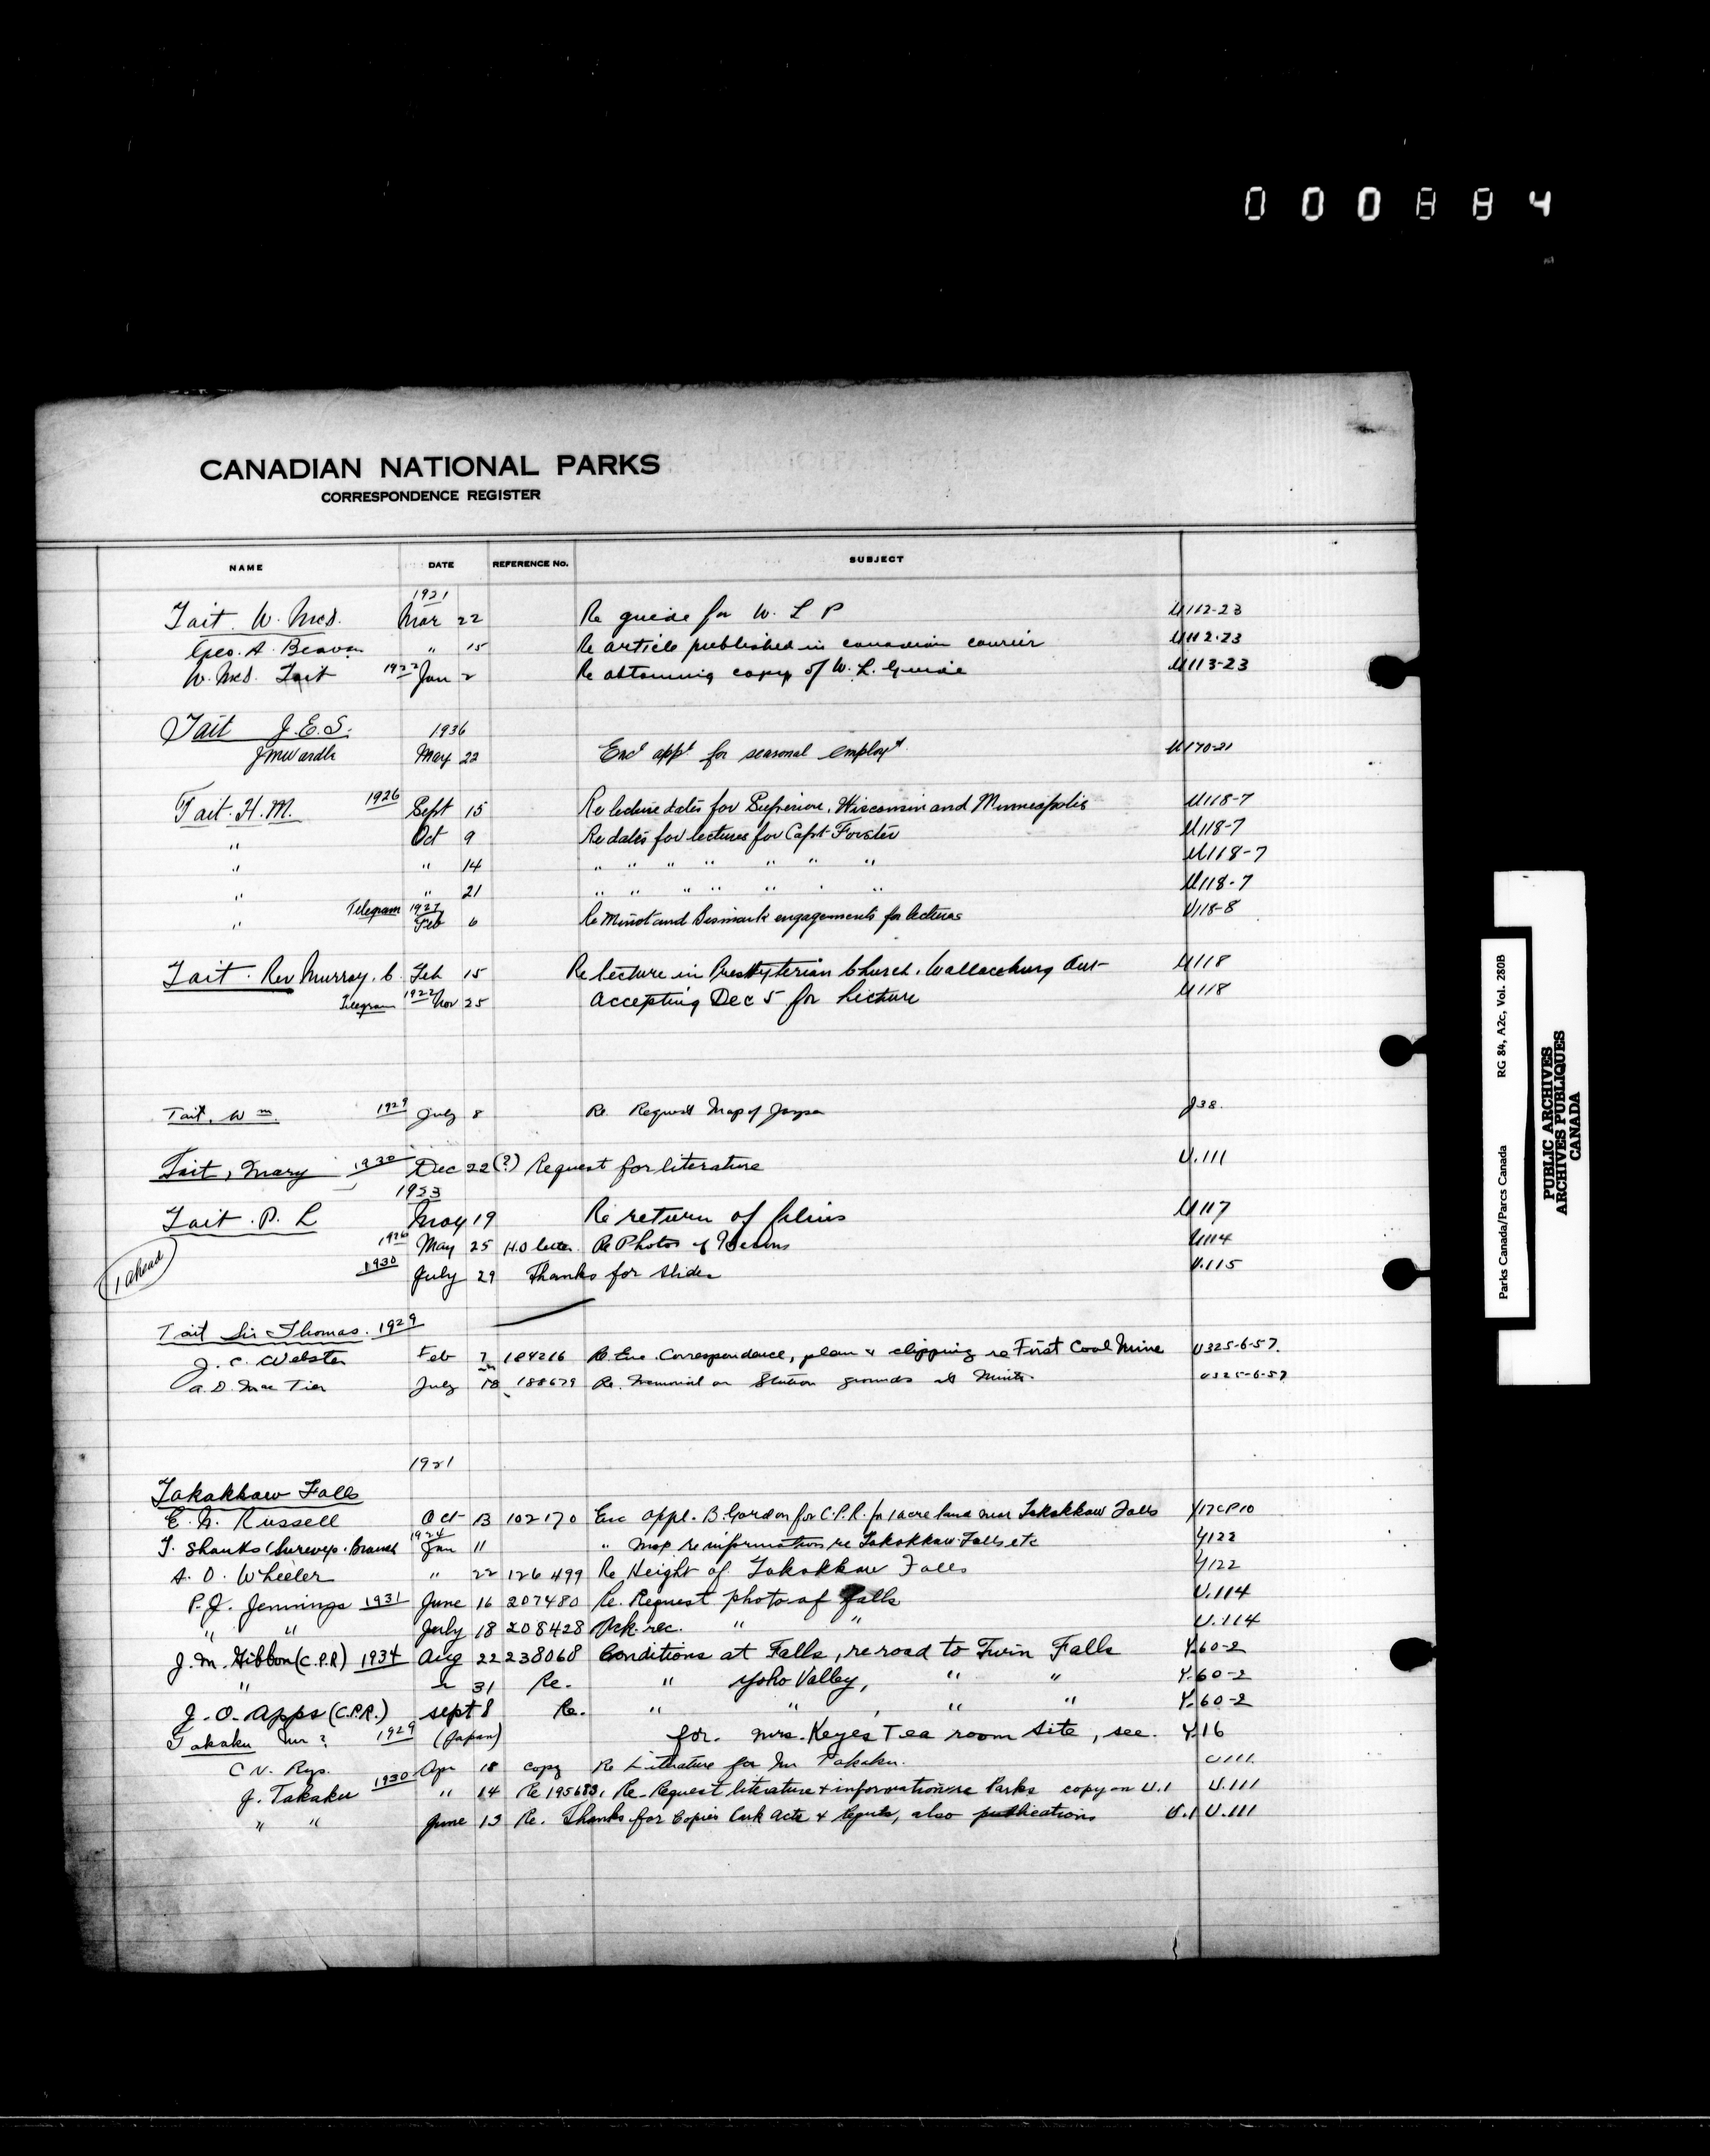 000884
CANADIAN NATIONAL PARKS
CORRESPONDENCE REGISTER
NAME DATE REFERENCE No. SUBJECT
1921
Tait. W. McD. Mar 22 Re guide for W. L P U112-23
Geo. A. Beavan " 15 Re article published in canadian courier U112.23
W. McD. Tait 1922 Jan 2 Re obtaining copy of W. L. Guide U113-23
Tait J.E.S. 1936
JMWardle May 22 Encl appl for seasonal employt U170-21
Tait. H.M. 1926 Sept 15 Re lecture dates for Superior, Wisconsin and Minneapolis U118-7
" Oct 9 Re dates for lectures for Capt Forster U118-7
" " 14 " " " " " " " U118-7
" " 21 " " " " " " " U118-7
Telegram 1927
" Feb 6 Re Minot and Bismark engagements for lectures U118-8
Tait. Rev Murray. C. Feb 15 Re lecture in Presbyterian Church. Wallaceburg Ont U118
Telegram 1922 Nov 25 accepting Dec 5 for lecture U118
Tait, Wm. 1929 July 8 Re. Request Map of Jasper J38.
Tait, Mary 1930 Dec 22 (?) Request for literature U.111
1923
Tait. P. L May 19 Re return of films U117
1926 May 25 H.O letter Re Photos of U114
1 ahead
1930 July 29 Thanks for slides U.115
Tait Sir Thomas. 1929
J. C. Webster Feb 7 184216 Re Enc. Correspondence, plan & clipping re First Coal Mine U325-6-57.
A. D. MacTier July 18 188679 Re. Memorial on Station grounds at Minto U325-6-57
1921
Takakkaw Falls
E. N. Russell Oct 13 102170 Enc appl. B. Gordon for C.P.R. for 1 acre land near Takakkaw Falls Y17CP10
T. Shanks (Surveys. Branch 1924 Jan 11 " Map re information re Takakkaw Falls etc Y122
A. O. Wheeler " 22 126499 Re Height of Takakkaw Falls Y122
P.J. Jennings 1931 June 16 207480 Re. Request photo of falls U.114
" " July 18 208428 Ack. rec. " " U.114
J. M. Gibbon (C.P.R) 1934 Aug 22 238068 Conditions at Falls, re road to Twin Falls Y.60-2
" " 31 Re. " Yoho Valley, " " Y.60-2
J. O. Apps (C.P.R.) Sept 8 Re. " " , " " Y.60-2
for. Mrs. Keyes Tea room site, see. Y.16
Takaku Mr ? 1929 (Japan)
C N. Rys. Apr 18 copy Re Literature for Mr Takaku. U111.
J. Takaku 1930 " 14 Re 195683, Re-Request literature & information re Parks copy on U.1 U.111
" " June 13 Re. Thanks for Copies Park Acts & Reguls, also publications U.1 U.111
Parks Canada/Parcs Canada RG 84, A2c, Vol. 280B
PUBLIC ARCHIVES
ARCHIVES PUBLIQUES
CANADA